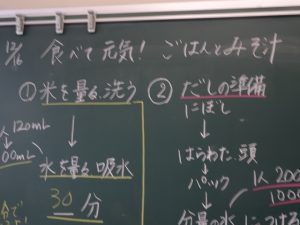 12/16 食べて元気! ごはんとみそ汁
①米を量る、洗う
人 120mL
00mL
↓
水を量る 吸水
30分
②だしの準備
にぼし
↓
はらわた、頭
↓
パック
↓
1人 200
1000
分量の水につける